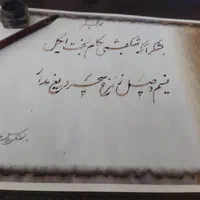 بشکر آنکه شکفتی بکام بخت ای گل
نسیم وصل ز مرغ سحر دریغ مدار